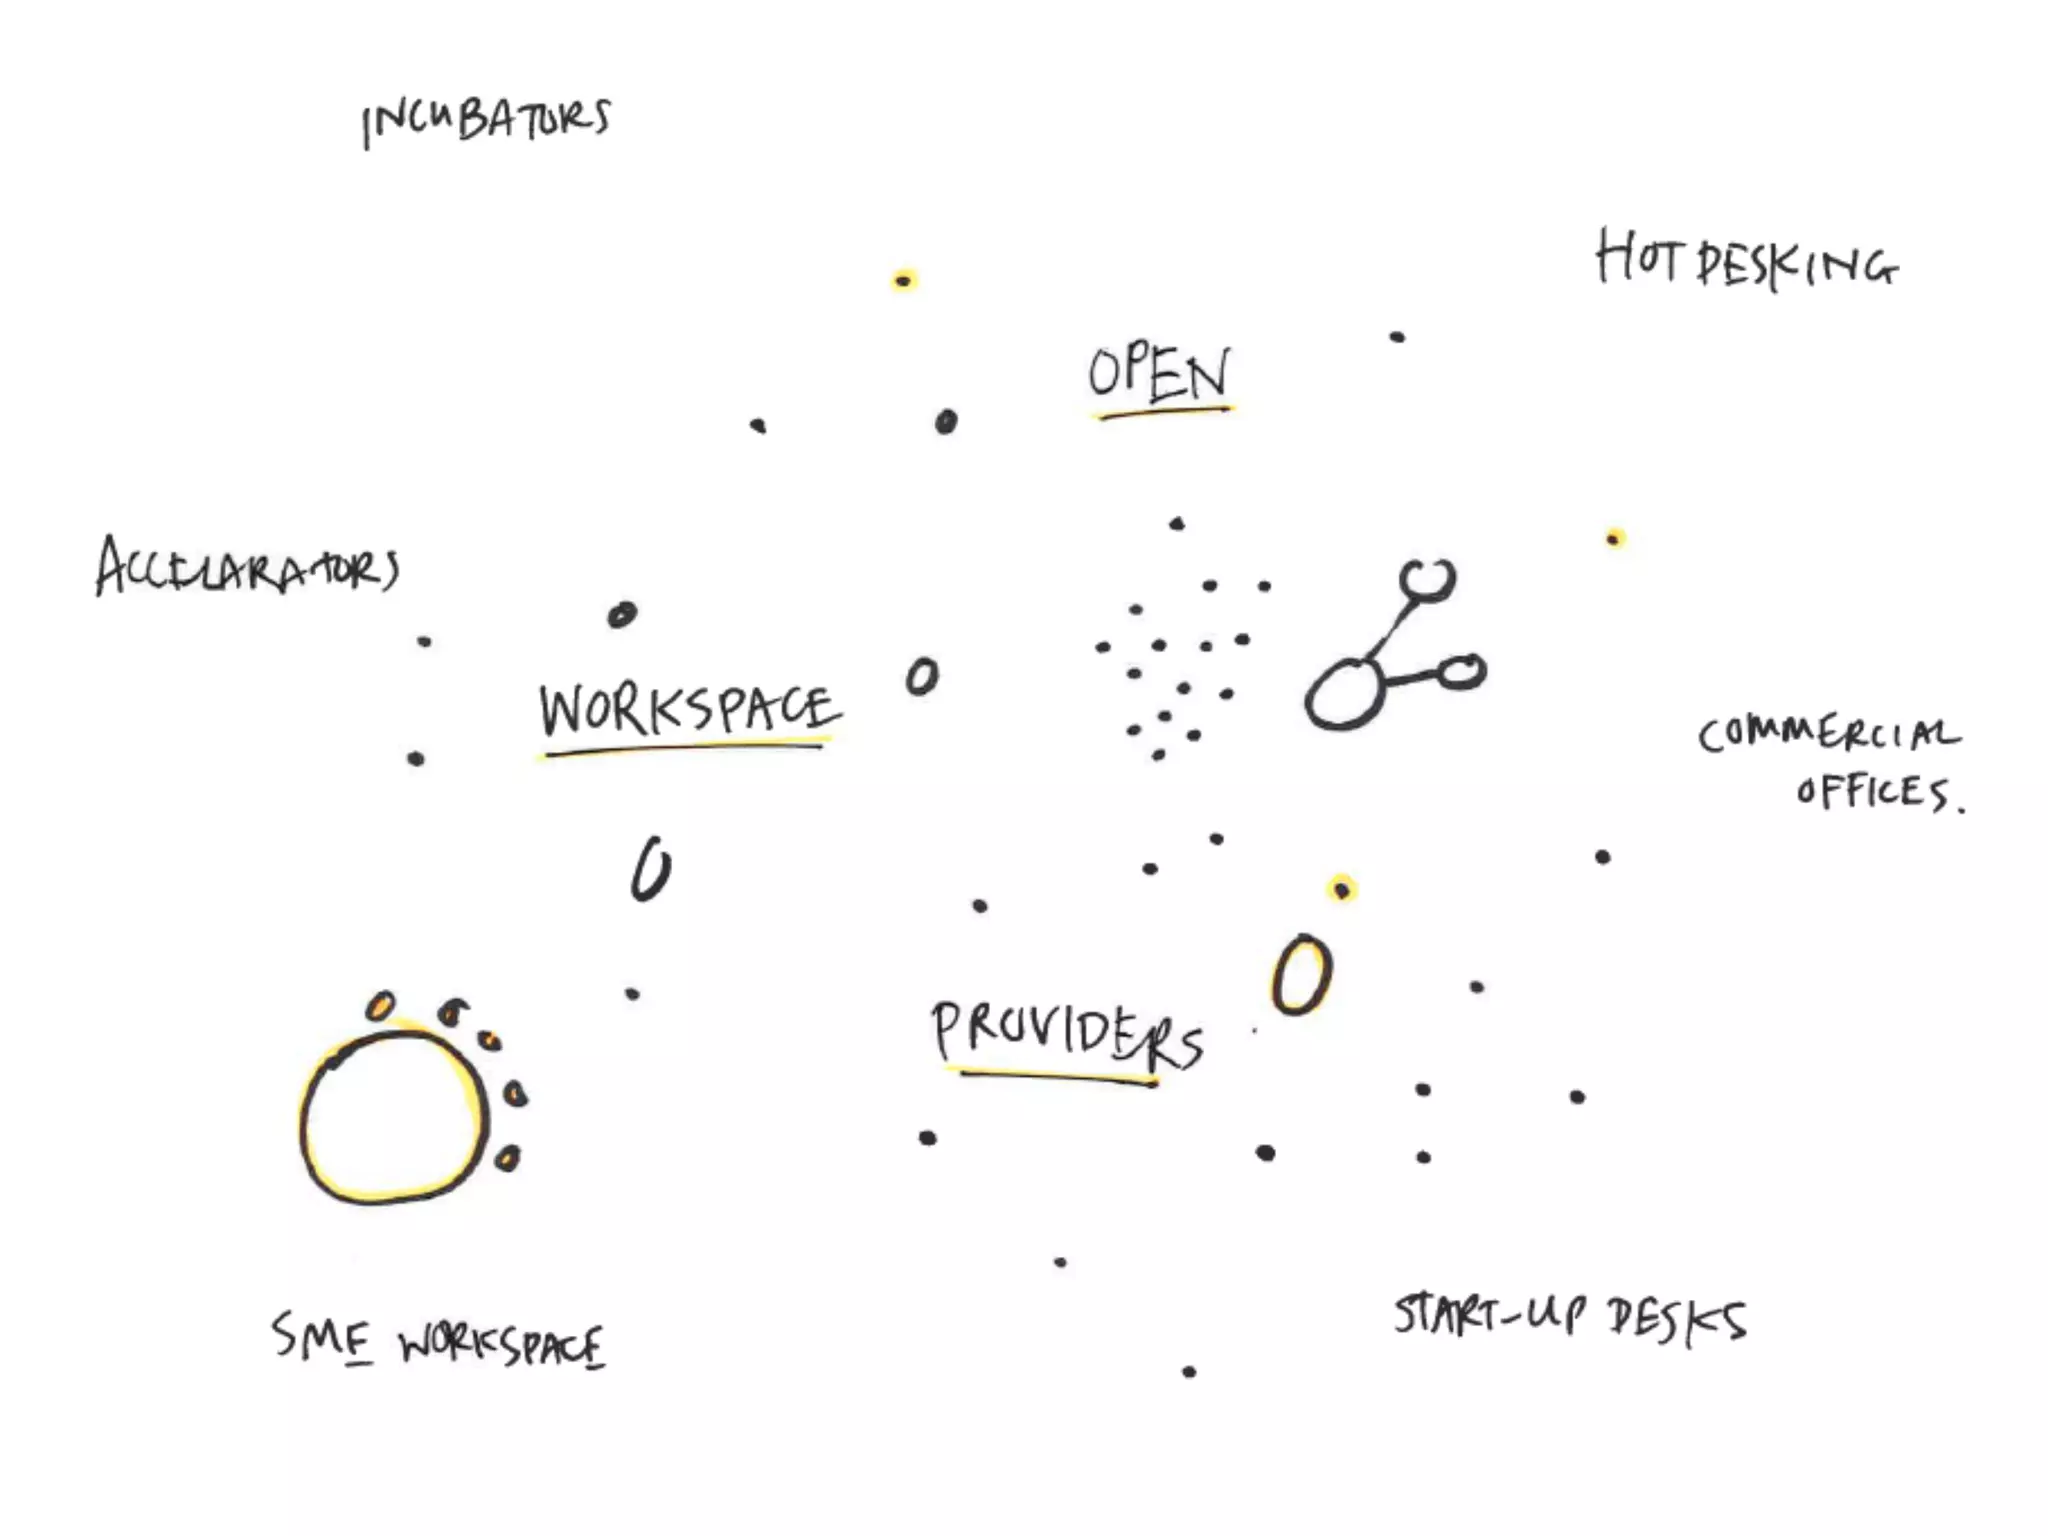 INCUBATORS
HOT DESKING
OPEN
ACCELARATORS
WORKSPACE
COMMERCIAL
OFFICES.
PROVIDERS
START-UP DESKS
SME WORKSPACE